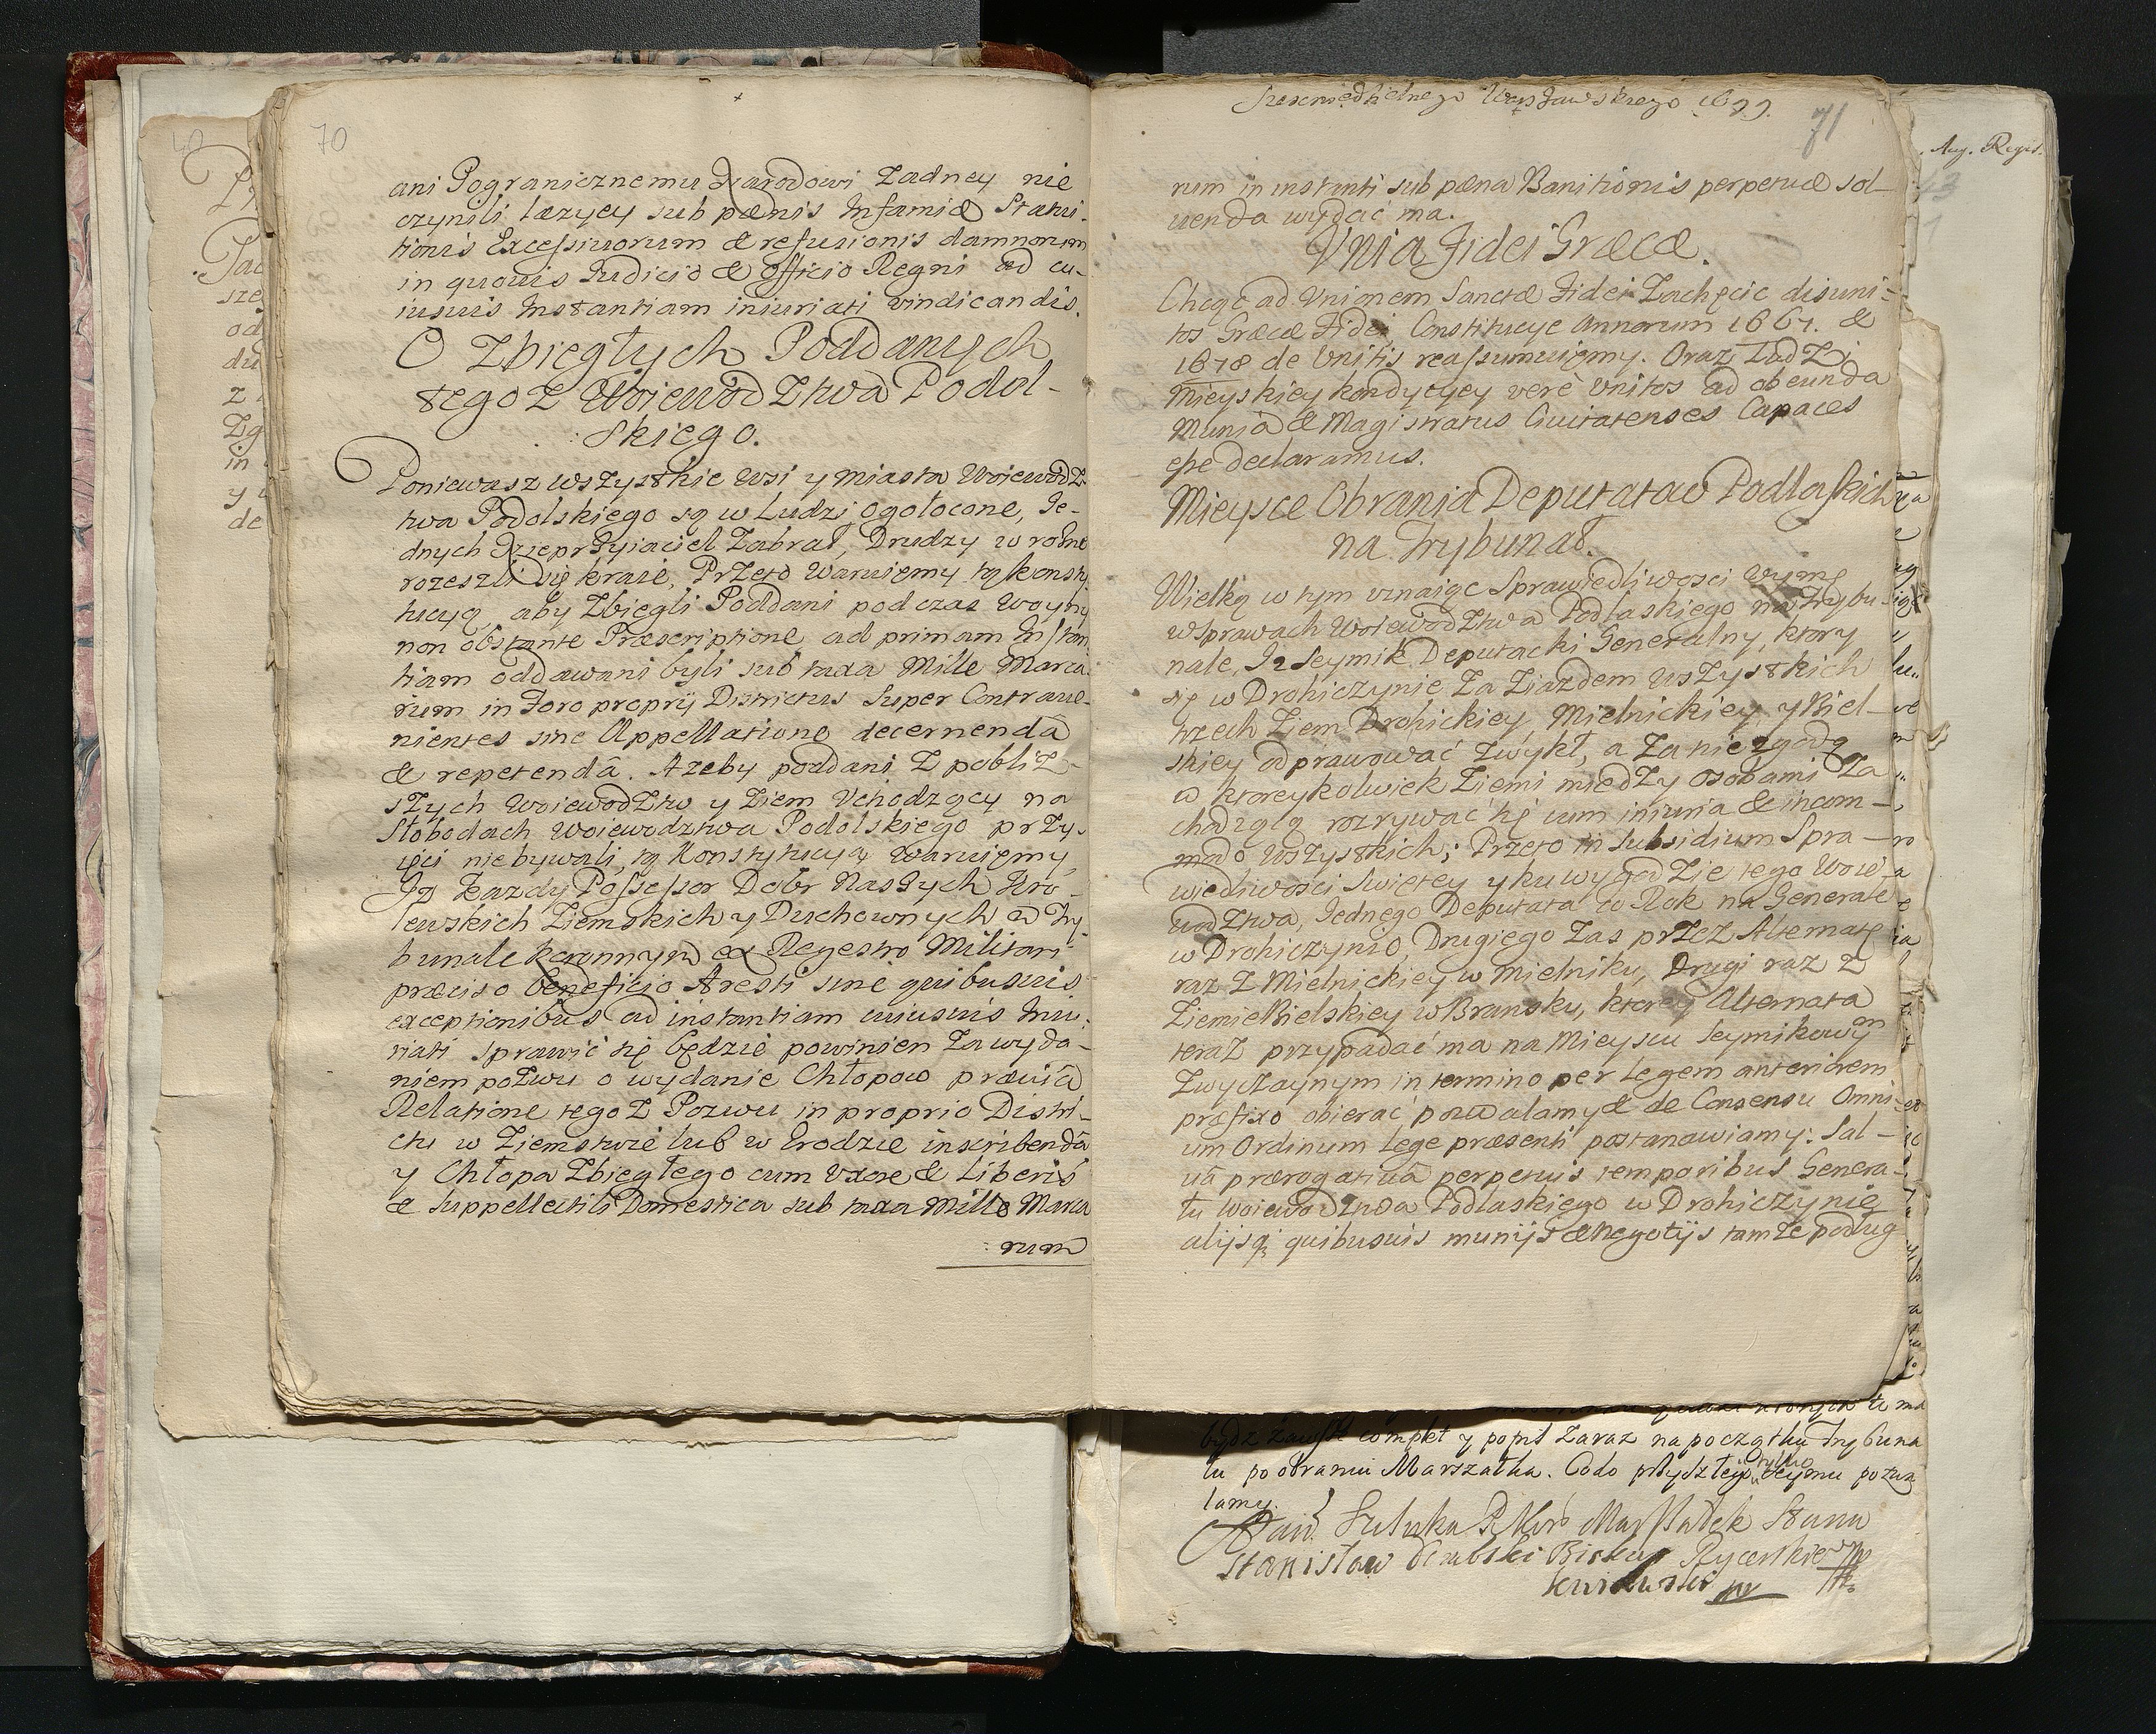 70
ani Pogranicznemu Narodowi Zadney nie
czynili læzyey sub pænis Infamiæ Statui-
tionis Excessiuorum & refusionis damnorum
in quouis Iudicio & officio Regni ad cu-
iusuis Instantiam iniuriati vindicandis.
O Zbiegłych Poddanych
tegoz Woiewodztwa Podol-
skiego.
Poniewasz wszystkie wsi y miasta Woiewodz-
twa Podolskiego są w Ludzi ogołocone, Je-
dnych Nieprzyiaciel Zabrał, Drudzy w rożne
rozeszli się kraie, Przeto Waruiemy tą konsty
tucyą, aby Zbiegli Poddani podczas Woyny
non obstante Præscriptione ad primam Instan
tiam oddawani byli sub taxa Mille Marca
rum in Foro proprij Districtus super Contraue-
nientes sine Appellatione decernendâ
& repetendâ. Azeby poddani Z pobliz-
szych Woiewodztw y Ziem Vchodzący na
Słobodach Woiewodztwa Podolskiego przy-
ięci niebywali, tą Konstytucyą Waruiemy,
Iz Kazdy Possessor Dobr Naszych Kro-
lewskich Ziemskich y Duchownych w Try-
bunale Koronnym ex Regestro Militari
præciso beneficio Aresti sine quibusuis
exceptionibus ad instantiam cuiusuis Iniu-
riati sprawić się będzie powinien Za wyda-
niem pozwu o wydanie Chłopow præuiâ
Relatione tegoz Pozwu in proprio Distri-
ctu w Ziemstwie lub w Grodzie inscribendâ
y Chłopa Zbiegłego cum Vxore & Liberis
& suppellectili Domestica sub taxa Mille Marca
rum
Szescniedzielnego Warszawskiego 1699.
71
rum in instanti sub pæna Banitionis perpetuæ sol-
uenda wydać ma.
Vnia Fidei Græcæ.
Chcąc ad Vnionem Sanctæ Fidei Zachęcic disuni-
tos Græcæ Fidei, Constitucye Annorum 1667. &
1678 de Vnitis reassumuiemy. Oraz Ludzi
mieyskiey kondycyey vere Vnitos ad obeunda
Munia & Magistratus Ciuitatenses Capaces
esse declaramus.
Mieysce Obrania Deputatow Podlaskich
na Trybunał.
Wielką w tym vznaiąc Sprawiedliwosci Vymę
w Sprawach Woiewodztwa Podlaskiego na Trybu-
nale, Iz Seymik Deputacki Generalny, ktory
się w Drohiczynie Za Ziazdem wszystkich
trzech Ziem Drohickiey Mielnickiey y Biel-
skiey odprawować zwykł, a Za niezgodą
w ktoreykolwiek Ziemi między osobami Za
chodzącą rozrywać się cum iniuria & incom-
modo wszystkich; Przeto in Subsidium Spra-
wiedliwości Swiętey y ku wygodzie tego Woie-
wodztwa, Jednego Deputata co Rok na Generale
w Drohiczynie, Drugiego Zas przez Alternatę
raz Z Mielnickiey w Mielniku, Drugi raz z
Ziemie Bielskiey w Bransku, ktorey Alternata
teraz przypadać ma na Mieyscu Seymikowym
Zwyczaynym in termino per Legem anteriorem
præfixo obierać pozwalamy & de Consensu Omni-
um Ordinum Lege præsenti postanawiamy: Sal-
uâ prærogatiuâ perpetuis temporibus Genera-
łu Woiewodztwa Podlaskiego w Drohiczynie
alijsq; quibusuis munijs & negotijs tamże podług
Aug. Regis.
bydz zawsze complet y popis Zaraz na początku Trybuna
łu po obraniu Marszałka. Co do przyszłego tylko Seymu pozwa
lamy.
Marszałek
Stanisław Biskup